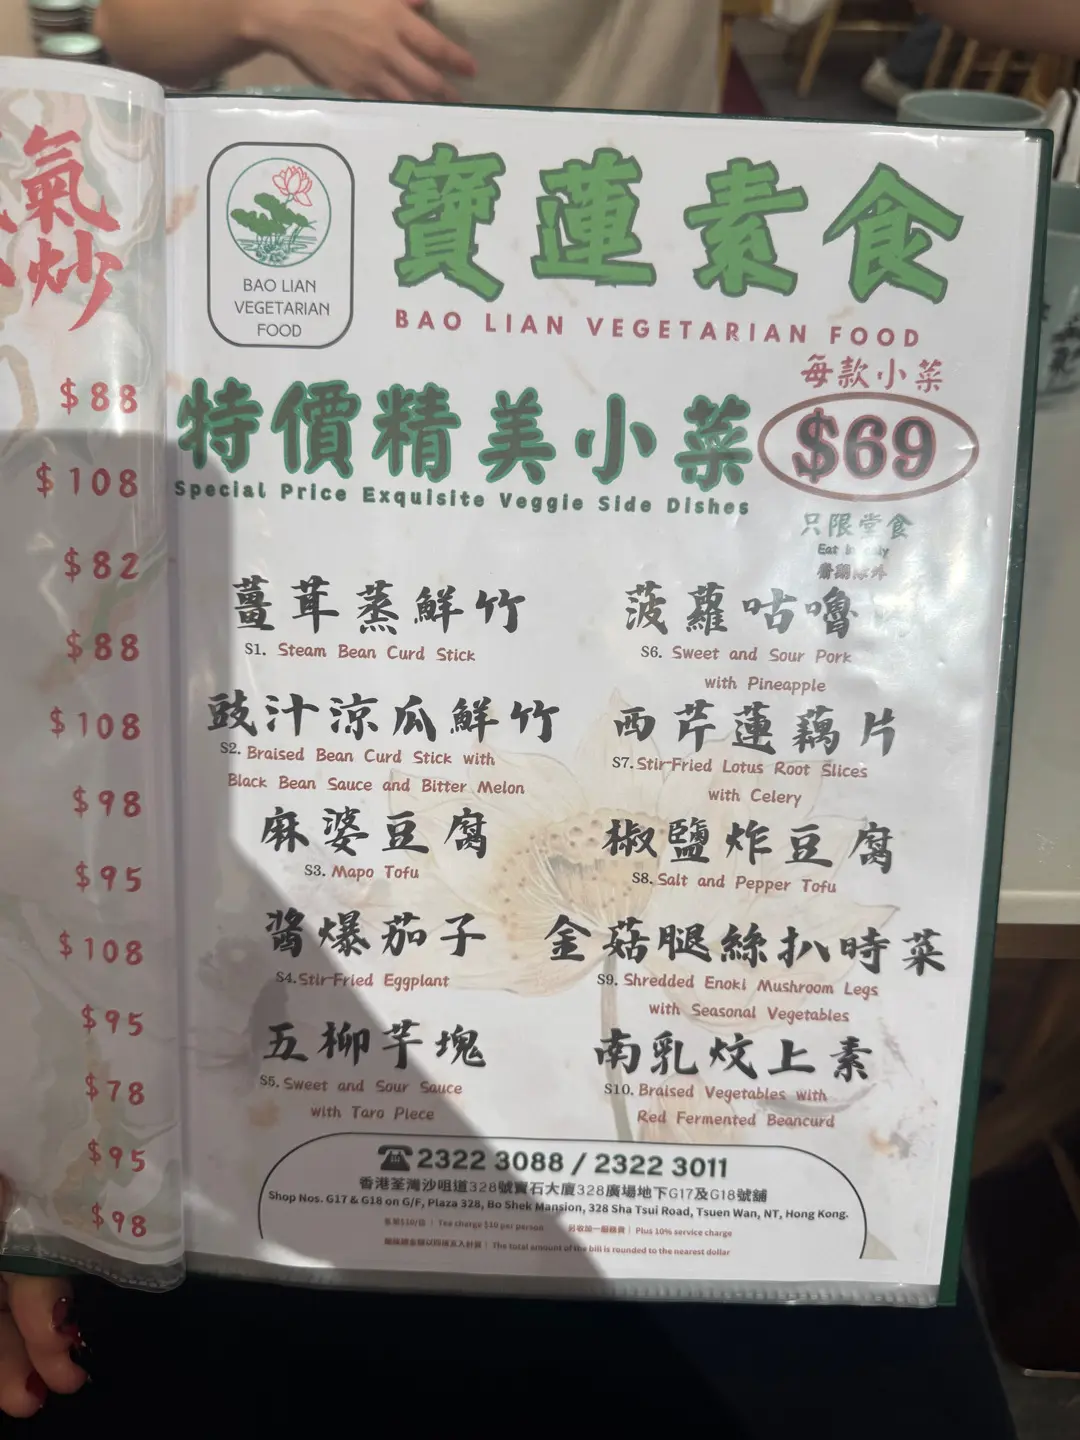 氣
炒
$88
$108
$82
$88
$108
$98
$95
$108
$95
$78
$95
$98
BAO LIAN
VEGETARIAN
FOOD
寶蓮素食
BAO LIAN VEGETARIAN FOOD
特價精美小菜
Special Price Exquisite Veggie Side Dishes
每款小菜
$69
只限堂食
Eat in only
薑茸蒸鮮竹
S1. Steam Bean Curd Stick
豉汁涼瓜鮮竹
S2. Braised Bean Curd Stick with
Black Bean Sauce and Bitter Melon
麻婆豆腐
S3. Mapo Tofu
醬爆茄子
S4. Stir-Fried Eggplant
五柳芋塊
S5. Sweet and Sour Sauce
with Taro Piece
菠蘿咕嚕
S6. Sweet and Sour Pork
with Pineapple
西芹蓮藕片
S7. Stir-Fried Lotus Root Slices
with Celery
椒鹽炸豆腐
S8. Salt and Pepper Tofu
金菇腿絲扒時菜
S9. Shredded Enoki Mushroom Legs
with Seasonal Vegetables
南乳炆上素
S10. Braised Vegetables with
Red Fermented Beancurd
☎2322 3088 / 2322 3011
香港荃灣沙咀道328號寶石大廈328廣場地下G17及G18號舖
Shop Nos. G17 & G18 on G/F, Plaza 328, Bo Shek Mansion, 328 Sha Tsui Road, Tsuen Wan, NT, Hong Kong.
茶芥$10/位 | Tea charge $10 per person 另收加一服務費 | Plus 10% service charge
The total amount of the bill is rounded to the nearest dollar